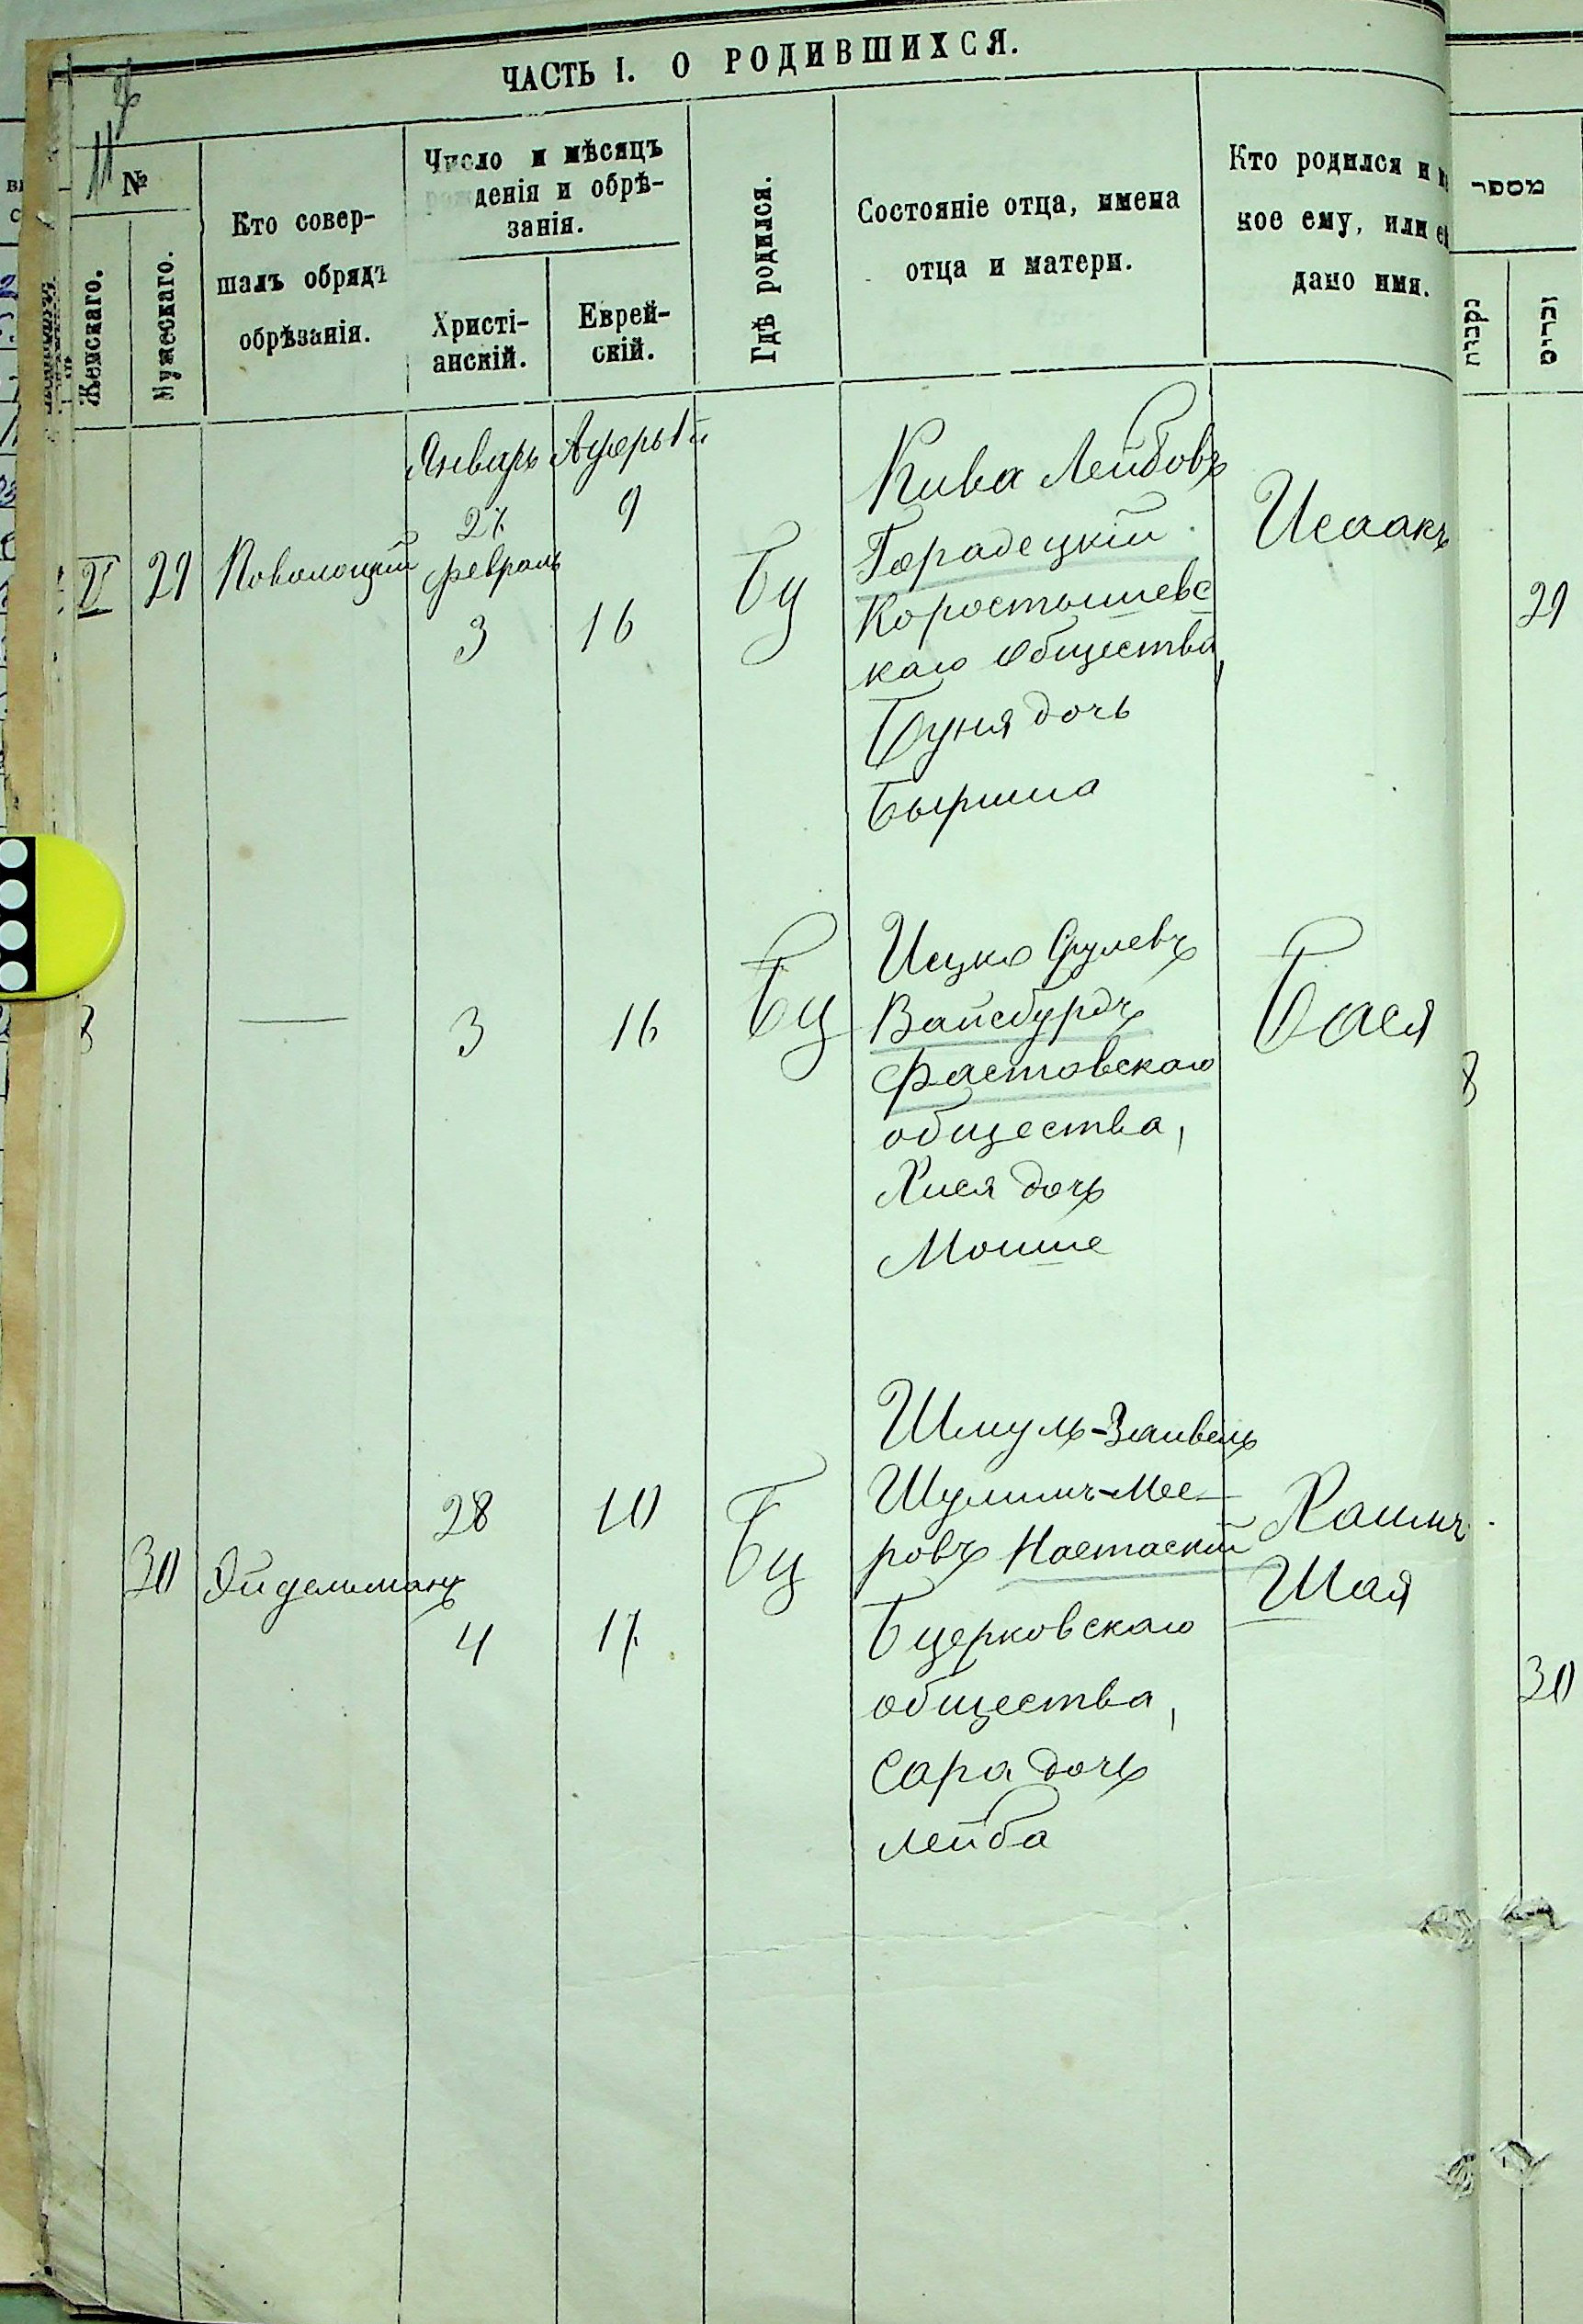 ЧАСТЬ I. О РОДИВШИХСЯ.
№
Женскаго.
Мужескаго.
Кто совер-
шалъ обрядъ
обрѣзанія.
Число и мѣсяцъ
рожденія и обрѣ-
занія.
Христі-
анскій.
Еврей-
скій.
Гдѣ родился.
Состояніе отца, имена
отца и матери.
Кто родился и
кое ему, или
дано имя.
מספר
נקבות
זכרים
Январь
27
Февраль
3
9
16
29
Поволоцкій
Бц
Кива Лейбовъ
Городецкій
Коростышевс
каго общества,
Буня дочь
Бырша
Исаакъ
29
8
—
3
16
Бц
Ицко Срулевъ
Вайсбурдъ
Фастовскаго
общества,
Хися дочь
Мошше
Бася
8
30
Эйдельманъ
28
4
10
17
Бц
Шмуль-Занвель
Шулимъ-Мее-
ровъ
Бцерковскаго
общества,
Сара дочь
Лейба
Хаимъ
Шая
30